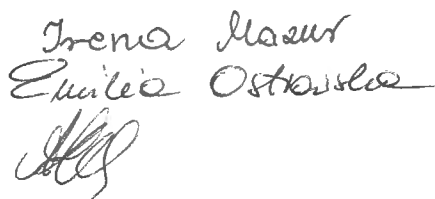 Irena Mazur
Emilia Ostrowska